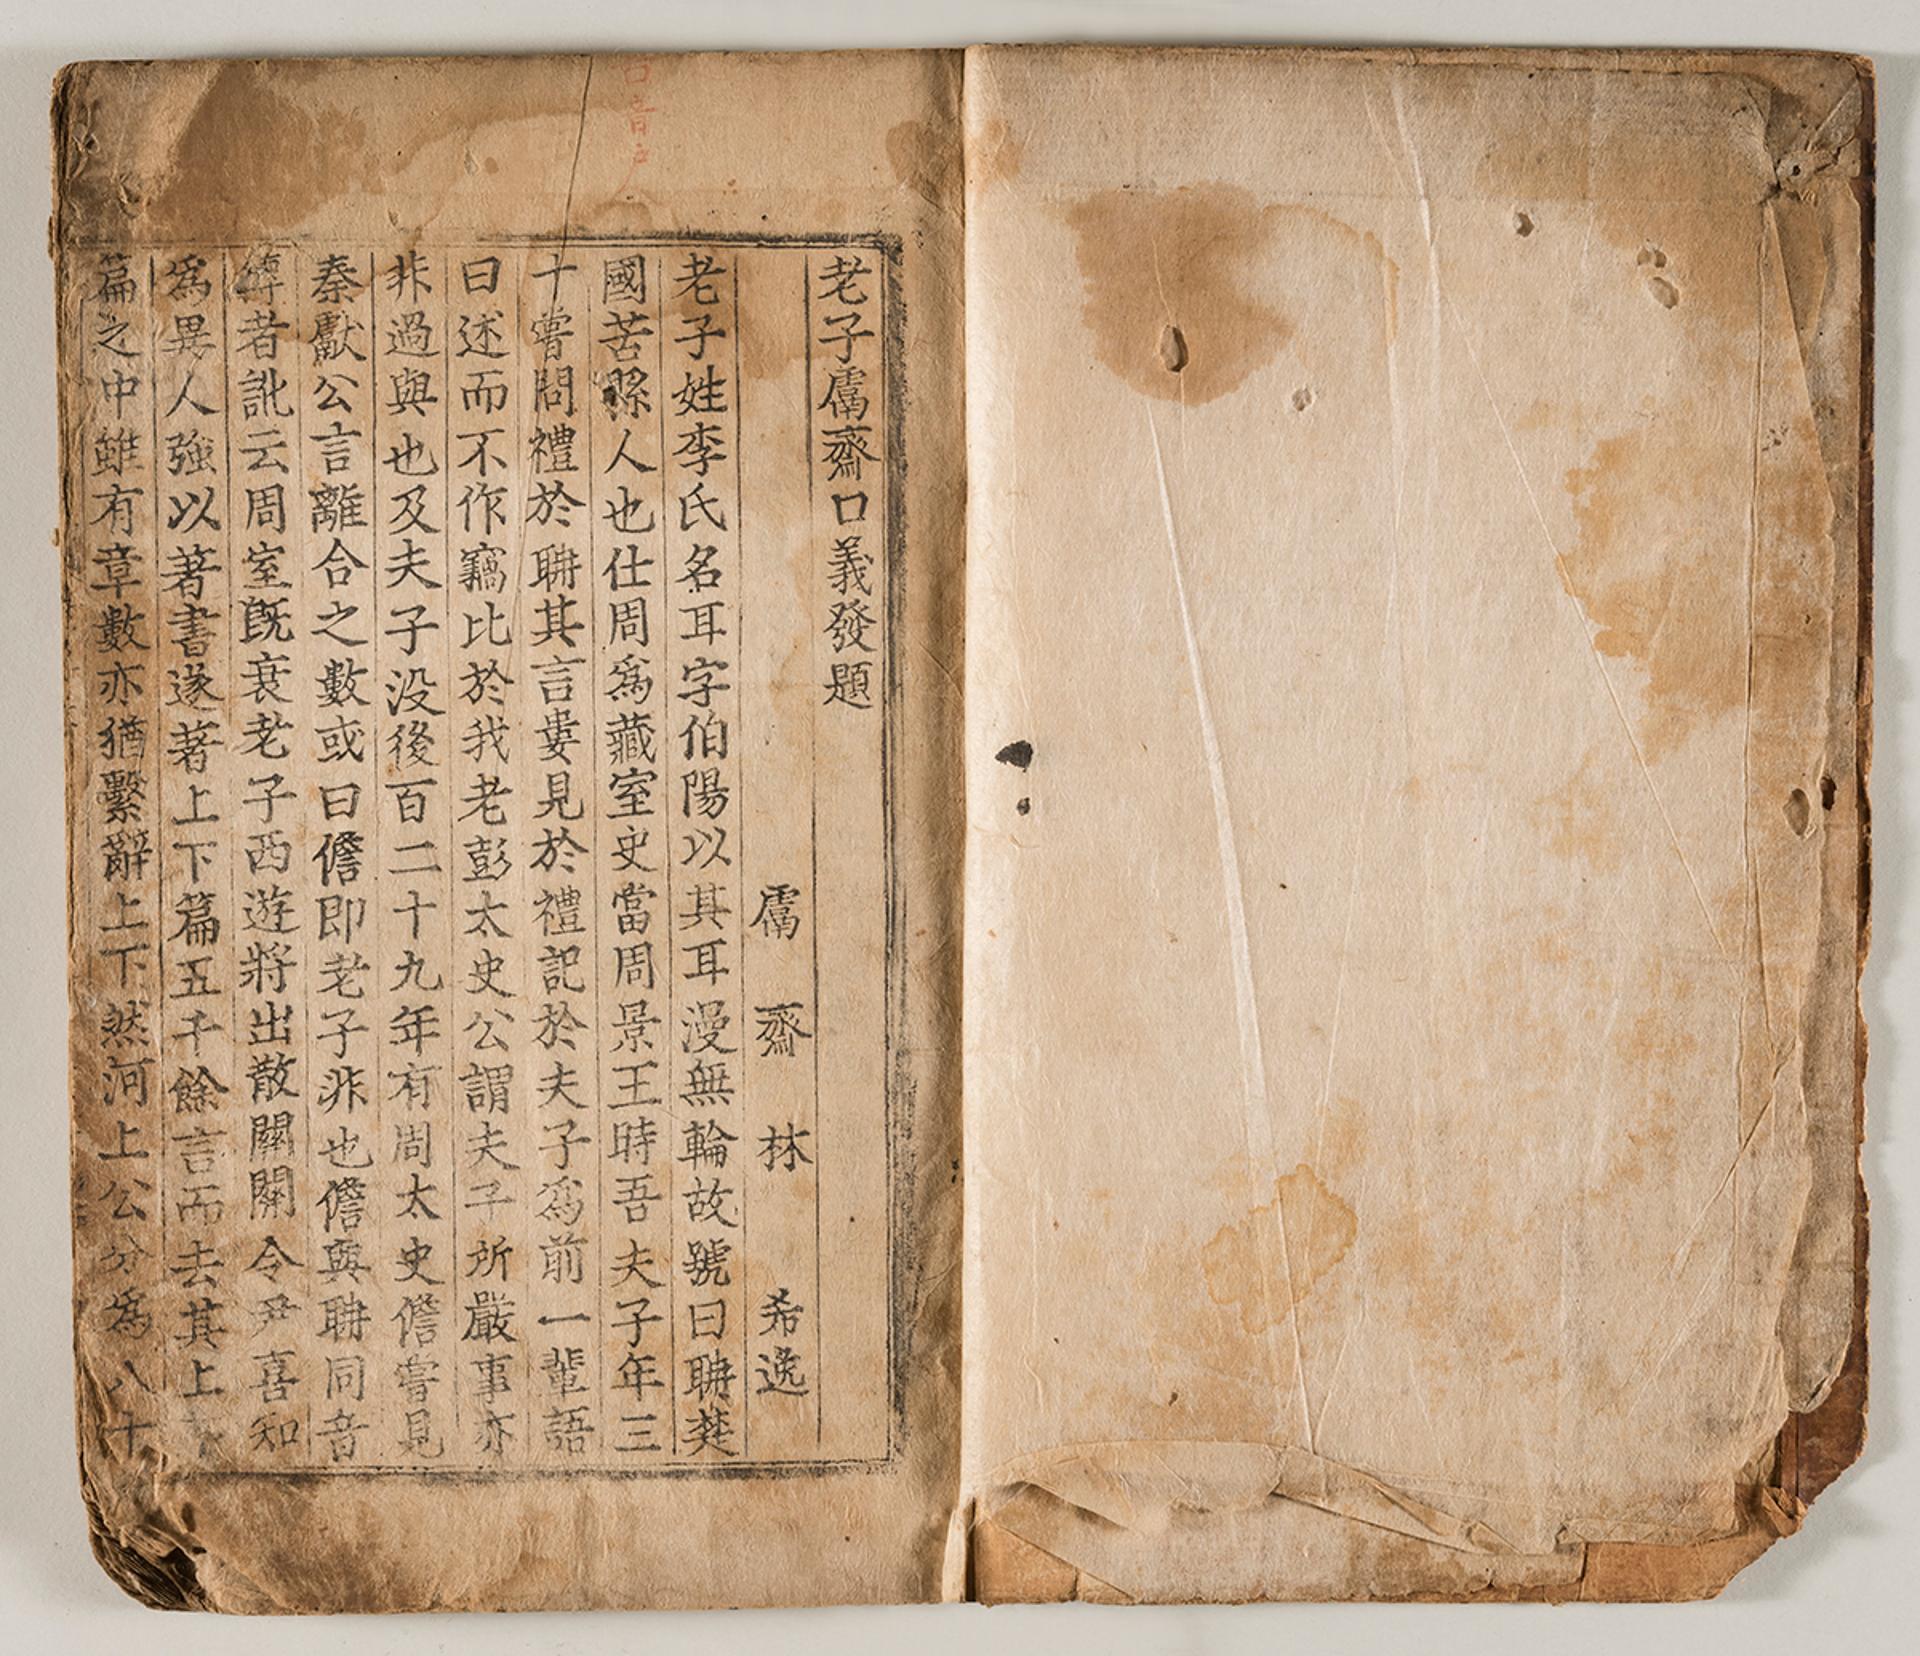 老子鬳齋口義發題
鬳齋林希逸
老子姓李氏名耳字伯陽以其耳漫無輪故號曰聃楚
國苦縣人也仕周爲藏室史當周景王時吾夫子年三
十嘗問禮於聃其言婁見於禮記於夫子爲前一輩語
曰述而不作竊比於我老彭太史公謂夫子所嚴事亦
非過與也及夫子没後百二十九年有周太史儋嘗見
秦獻公言離合之數或曰儋即老子非也儋與聃同音
者訛云周室旣衰老子西遊將出散關關令尹喜知
爲異人強以著書遂著上下篇五千餘言而去其上
篇之中雖有章數亦猶繫辭上下然河上公分爲八十
音戶